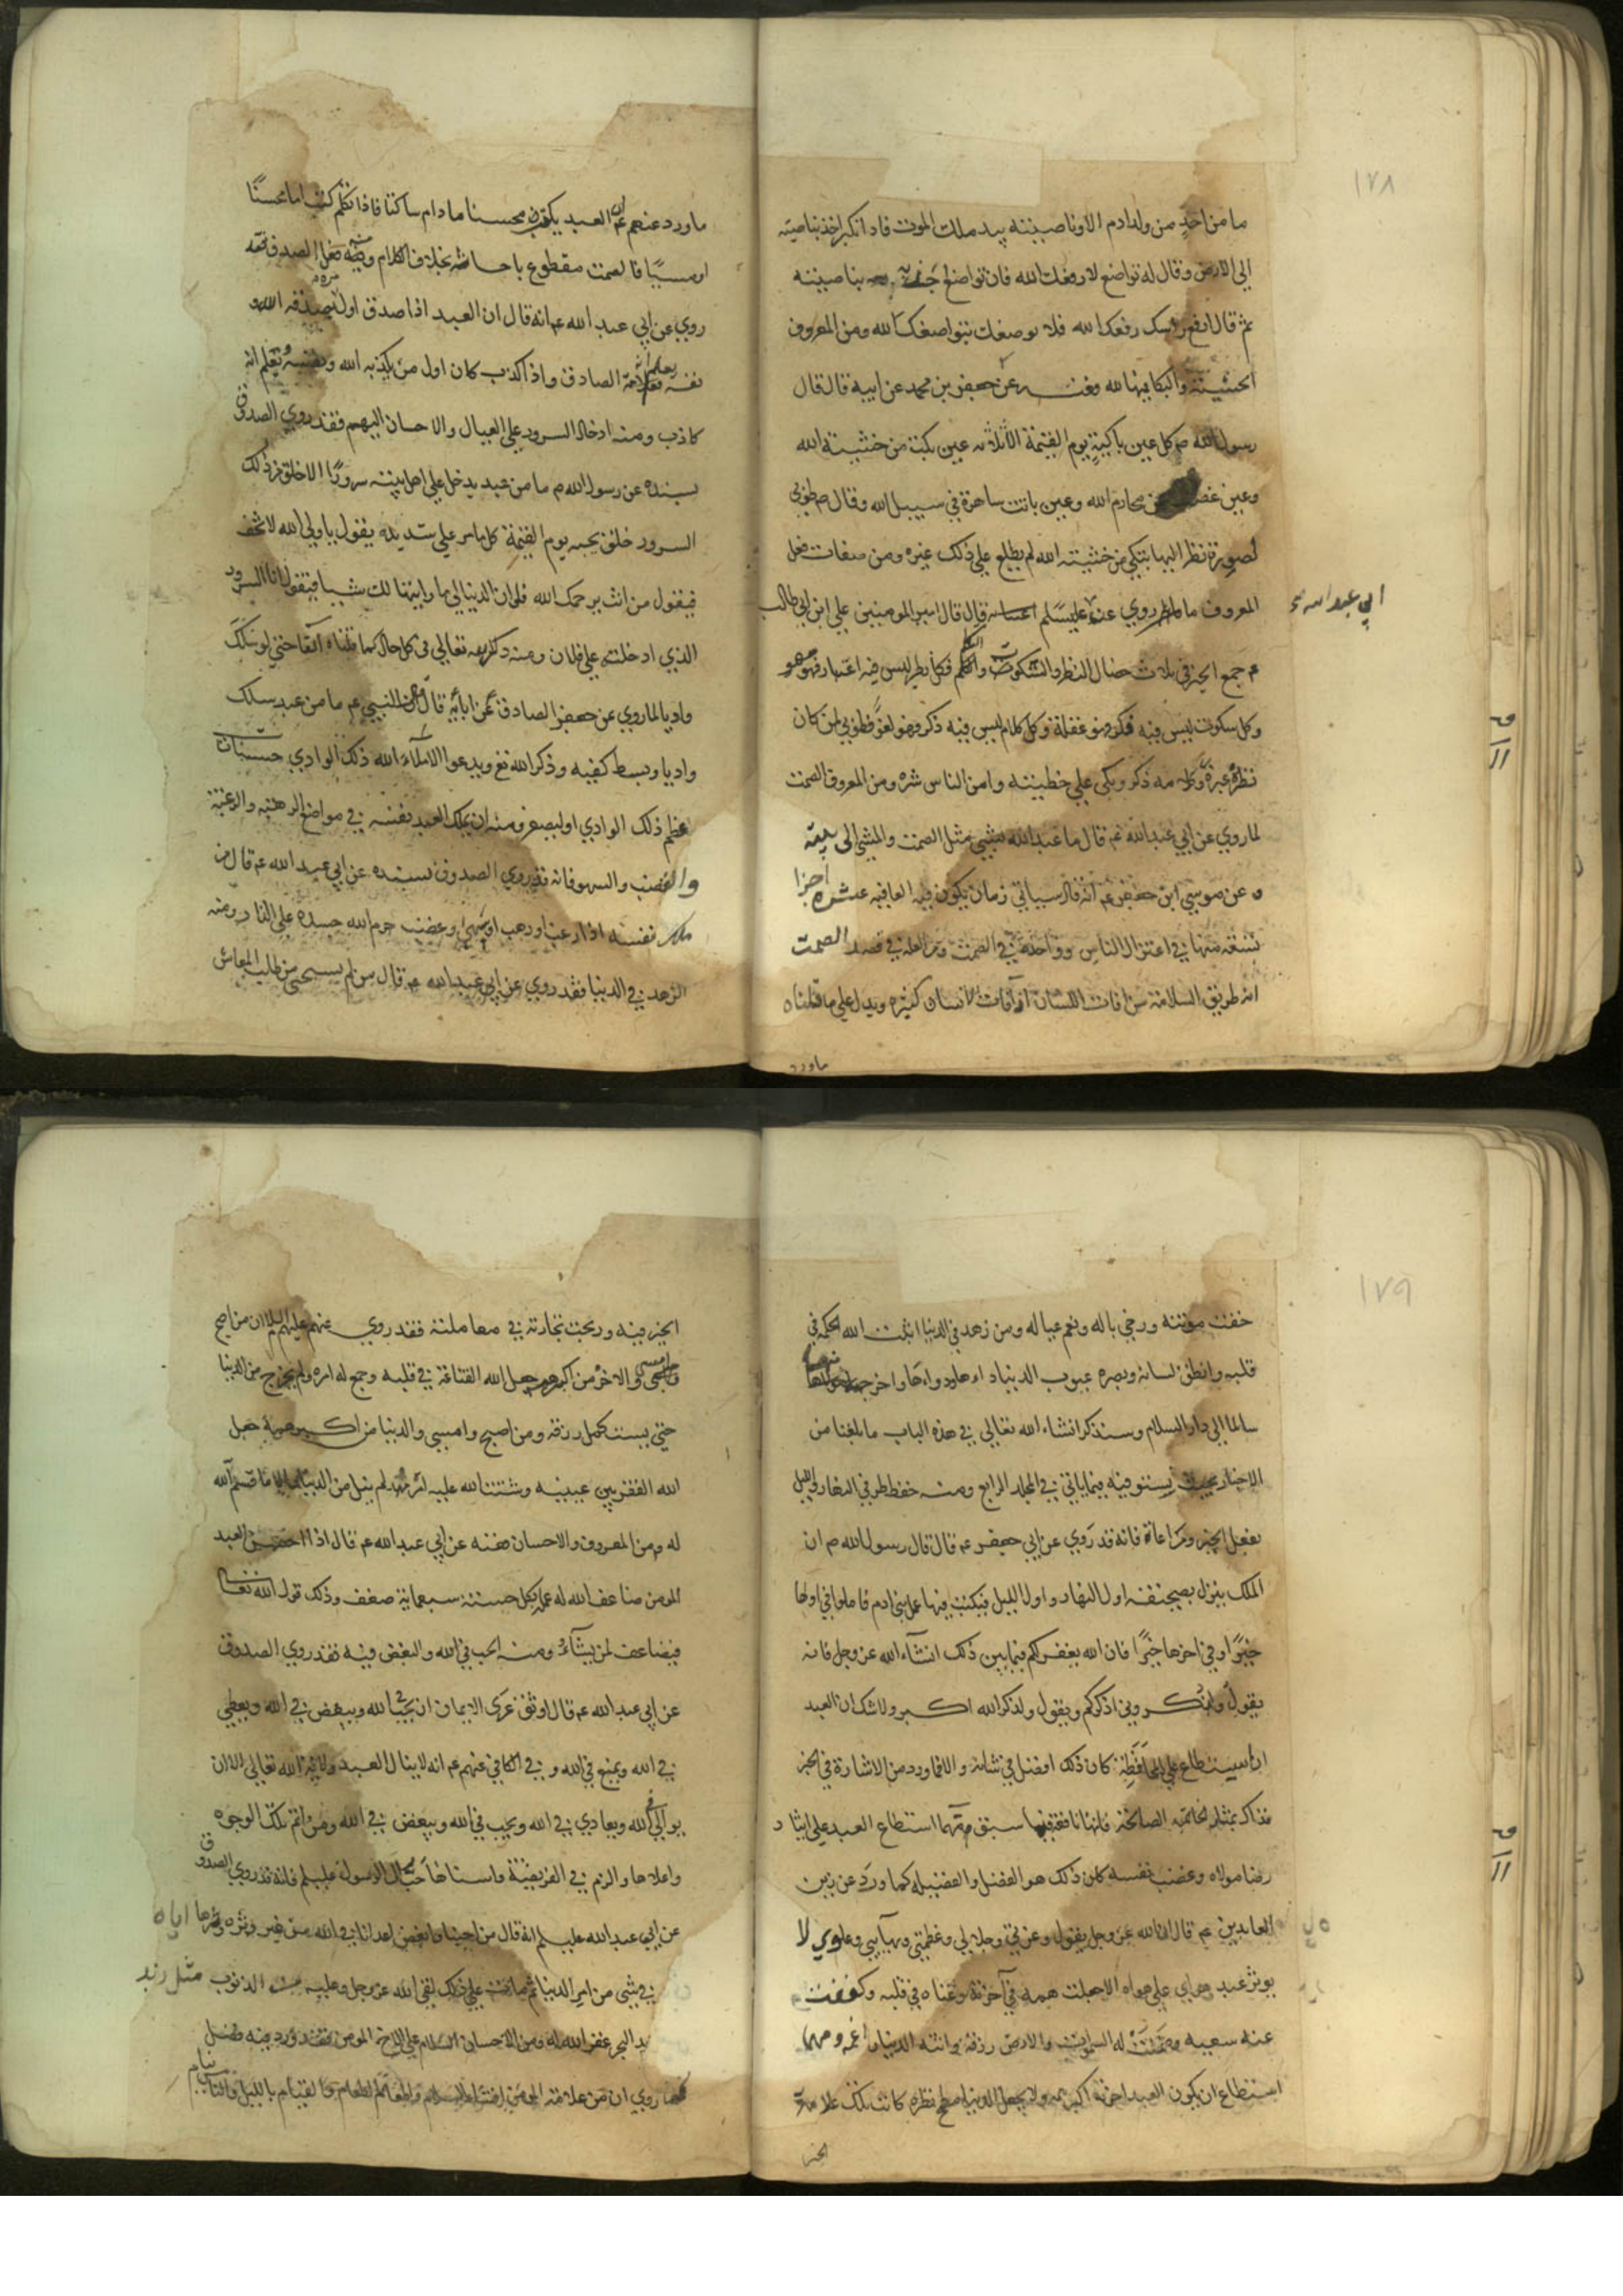 ١٧٨
ما من احدٍ من ولد ادم الا وناصيته بيد ملك الموت فاذا تكبر اخذ بناصيته
الى الارض وقال له تواضع لا رفعك الله فان تواضع بناصيته
ثم قال ارفع راسك رفعك الله فلا بتواضعك لله ومن المعروف
الخشية والبكا فيها لله عن جعفر بن محمد عن ابيه قال قال
رسول الله ص كل عين باكية يوم القيمة الا ثلاثة عين بكت من خشية الله
وعين عن محارم الله وعين باتت ساهرة في سبيل الله وقال ص طوبى
لصورة نظر اليها تبكي من خشية الله لم يطلع على ذلك غيره ومن صفات فعل
المعروف روي عن قال قال امير المومنين علي ابن ابي طالب
ابي عبد الله
ع جمع الخير في ثلاث خصال النظر والسكوت والكلام فكل نظر ليس فيه اعتبار فهو سهو
وكل سكوت ليس فيه فكر فهو غفلة وكل كلام ليس فيه ذكر فهو لغوٌ فطوبى لمن كان
نظره عبرة ذكر وبكى على خطيئته وامن الناس شره ومن المعروف الصمت
لما روي عن ابي عبد الله ع قال ما عبد الله بشيئ مثل الصمت والمشي الى بيته
و عن موسى ابن جعفر ع انه قال سياتي زمان يكون فيه العافية عشرة اجزا
تسعة منها في اعتزال الناس وواحدة في الصمت في قصد الصمت
انه طريق السلامة من افات اللسان الانسان كثيرة ويدل على ما قلناه
ما ورد
ما ورد عنهم ع ان العبد يكتب محسنا ما دام ساكتا فاذا تكلم كتب اما محسنًا
او مسيئًا فالصمت مقطوع باحسانه بخلاف الكلام الصدق فقد
روي عن ابي عبد الله ع انه قال ان العبد اذا صدق اول الله و
نفسه الصادق واذا كذب كان اول من يكذبه الله ونفسه تعلم انه
كاذب ومنه ادخال السرور على العيال والاحسان اليهم فقد روي الصدوق
بسنده عن رسول الله ص ما من عبد يدخل على اهل بيته سرورًا الا خلق من ذلك
السرور خلق يجيه يوم القيمة كل ما مر على شديدة يقول يا ولي الله لا تخف
فيقول من انت يرحمك الله فلو ان الدنيا لي ما رايتها لك شيئا فيقول انا السرور
الذي ادخلته على فلان ومنه ذكر الله تعالى في كل حال كما قلناه آنفا حتى لو سلك
واديا لما روي عن جعفر الصادق عن ابائه قال قال النبي ص ما من عبد سلك
واديا وبسط كفيه وذكر الله تع ويدعو الا ملاء الله ذلك الوادي حسنات
عظم ذلك الوادي او ليصغر ومنه ان يملك العبد نفسه في مواضع الرهبة والرغبة
والغضب والسهو فانه قد روي الصدوق بسنده عن ابي عبد الله ع قال من
ملك نفسه اذا رغب او رهب او اشتهى او غضب حرم الله جسده على النار ومنه
الزهد في الدنيا فقد روي عن ابي عبد الله ع قال من لم يستحي من طلب المعاش
١٧٩
خفت مؤنته ورخي باله ونعم عياله ومن زهد في الدنيا اثبت الله الحكمة في
قلبه وانطق لسانه وبصره عيوب الدنيا داءها ودواءها واخرجه منها
سالما الى دار السلام وسنذكر انشاء الله تعالى في هذه الباب ما بلغنا من
الاخبار بحيث يستوفيه فيما ياتي في المجلد الرابع ومنه حفظ طرفي النهار والليل
بفعل الخير ومراعاة فانه قد روي عن ابي جعفر ع قال قال رسول الله ص ان
الملك ينزل بصحيفة اول النهار واول الليل فيكتب فيها عمل بني ادم فاملوا في اولها
خيرًا وفي اخرها خيرًا فان الله يغفر لكم فيما بين ذلك انشآء الله عز وجل فانه
يقول فاذكروني اذكركم ويقول ولذكر الله اكبر ولا شك ان العبد
ان استطاع على المحافظة كان ذلك افضل في شانه والا فما ورد من الاشارة في الخبر
الصالحة سبق مهما استطاع العبد على ايثار
رضا مولاه وغضب نفسه كان ذلك هو الفضل والفضيلة كما ورد عن زين
العابدين ع قال ان الله عز وجل يقول وعزتي وجلالي وعظمتي وبهآيي وعلوي لا
يوثر عبد هواي على هواه الا جعلت همه في آخرته وغناه في قلبه وكففت
عنه ضيعته وضمنت له السموات والارض رزقه واتته الدنيا راغمة ومهما
استطاع ان يكون العبد اخرته اكبر همه ولا يجعل الدنيا مطمح نظره كانت تلك علامة
الخير
الخير فيه وربحت تجارته في معاملته فقد روي عنهم عليهم السلام ان من اصبح
وامسى والاخرة من اكبر همه جعل الله القناعة في قلبه وجمع له امره ولم يخرج من الدنيا
حتى يستكمل رزقه ومن اصبح وامسى والدنيا من اكبر همه جعل
الله الفقر بين عينيه وشتت الله عليه امره ولم ينل من الدنيا الا ما قسم الله
له ومن المعروف والاحسان عن ابي عبد الله ع قال اذا احسن العبد
المومن ضاعف الله له عمله بكل حسنة سبعماية ضعف وذلك قول الله تعالى
فيضاعف لمن يشآء ومنه الحب في الله والبغض فيه فقد روي الصدوق
عن ابي عبد الله ع قال اوثق عرى الايمان ان يحب لله ويبغض في الله ويعطي
في الله ويمنع في الله و في الكافي عنهم ع انه لا ينال العبد ولاية الله تعالى الا ان
يوالي في الله ويعادي في الله ويحب في الله ويبغض في الله ومن اتم تلك الوجوه
واعلاها والزم في الفريضة واسناها حب ال الرسول فانه قد روي الصدوق
عن ابي عبد الله انه قال من احبنا وابغض عدونا في الله من غير وترة وترها اياه
في شي من امر الدنيا ثم مات على ذلك لقي الله عز وجل وعليه من الذنوب مثل زبد
زبد البحر غفر الله له ومن الاحسان السلام على الاخ المومن فقد ورد فيه فضل
كما روي ان من علامة المومن افشاء السلام واطعام الطعام والقيام بالليل والناس نيام